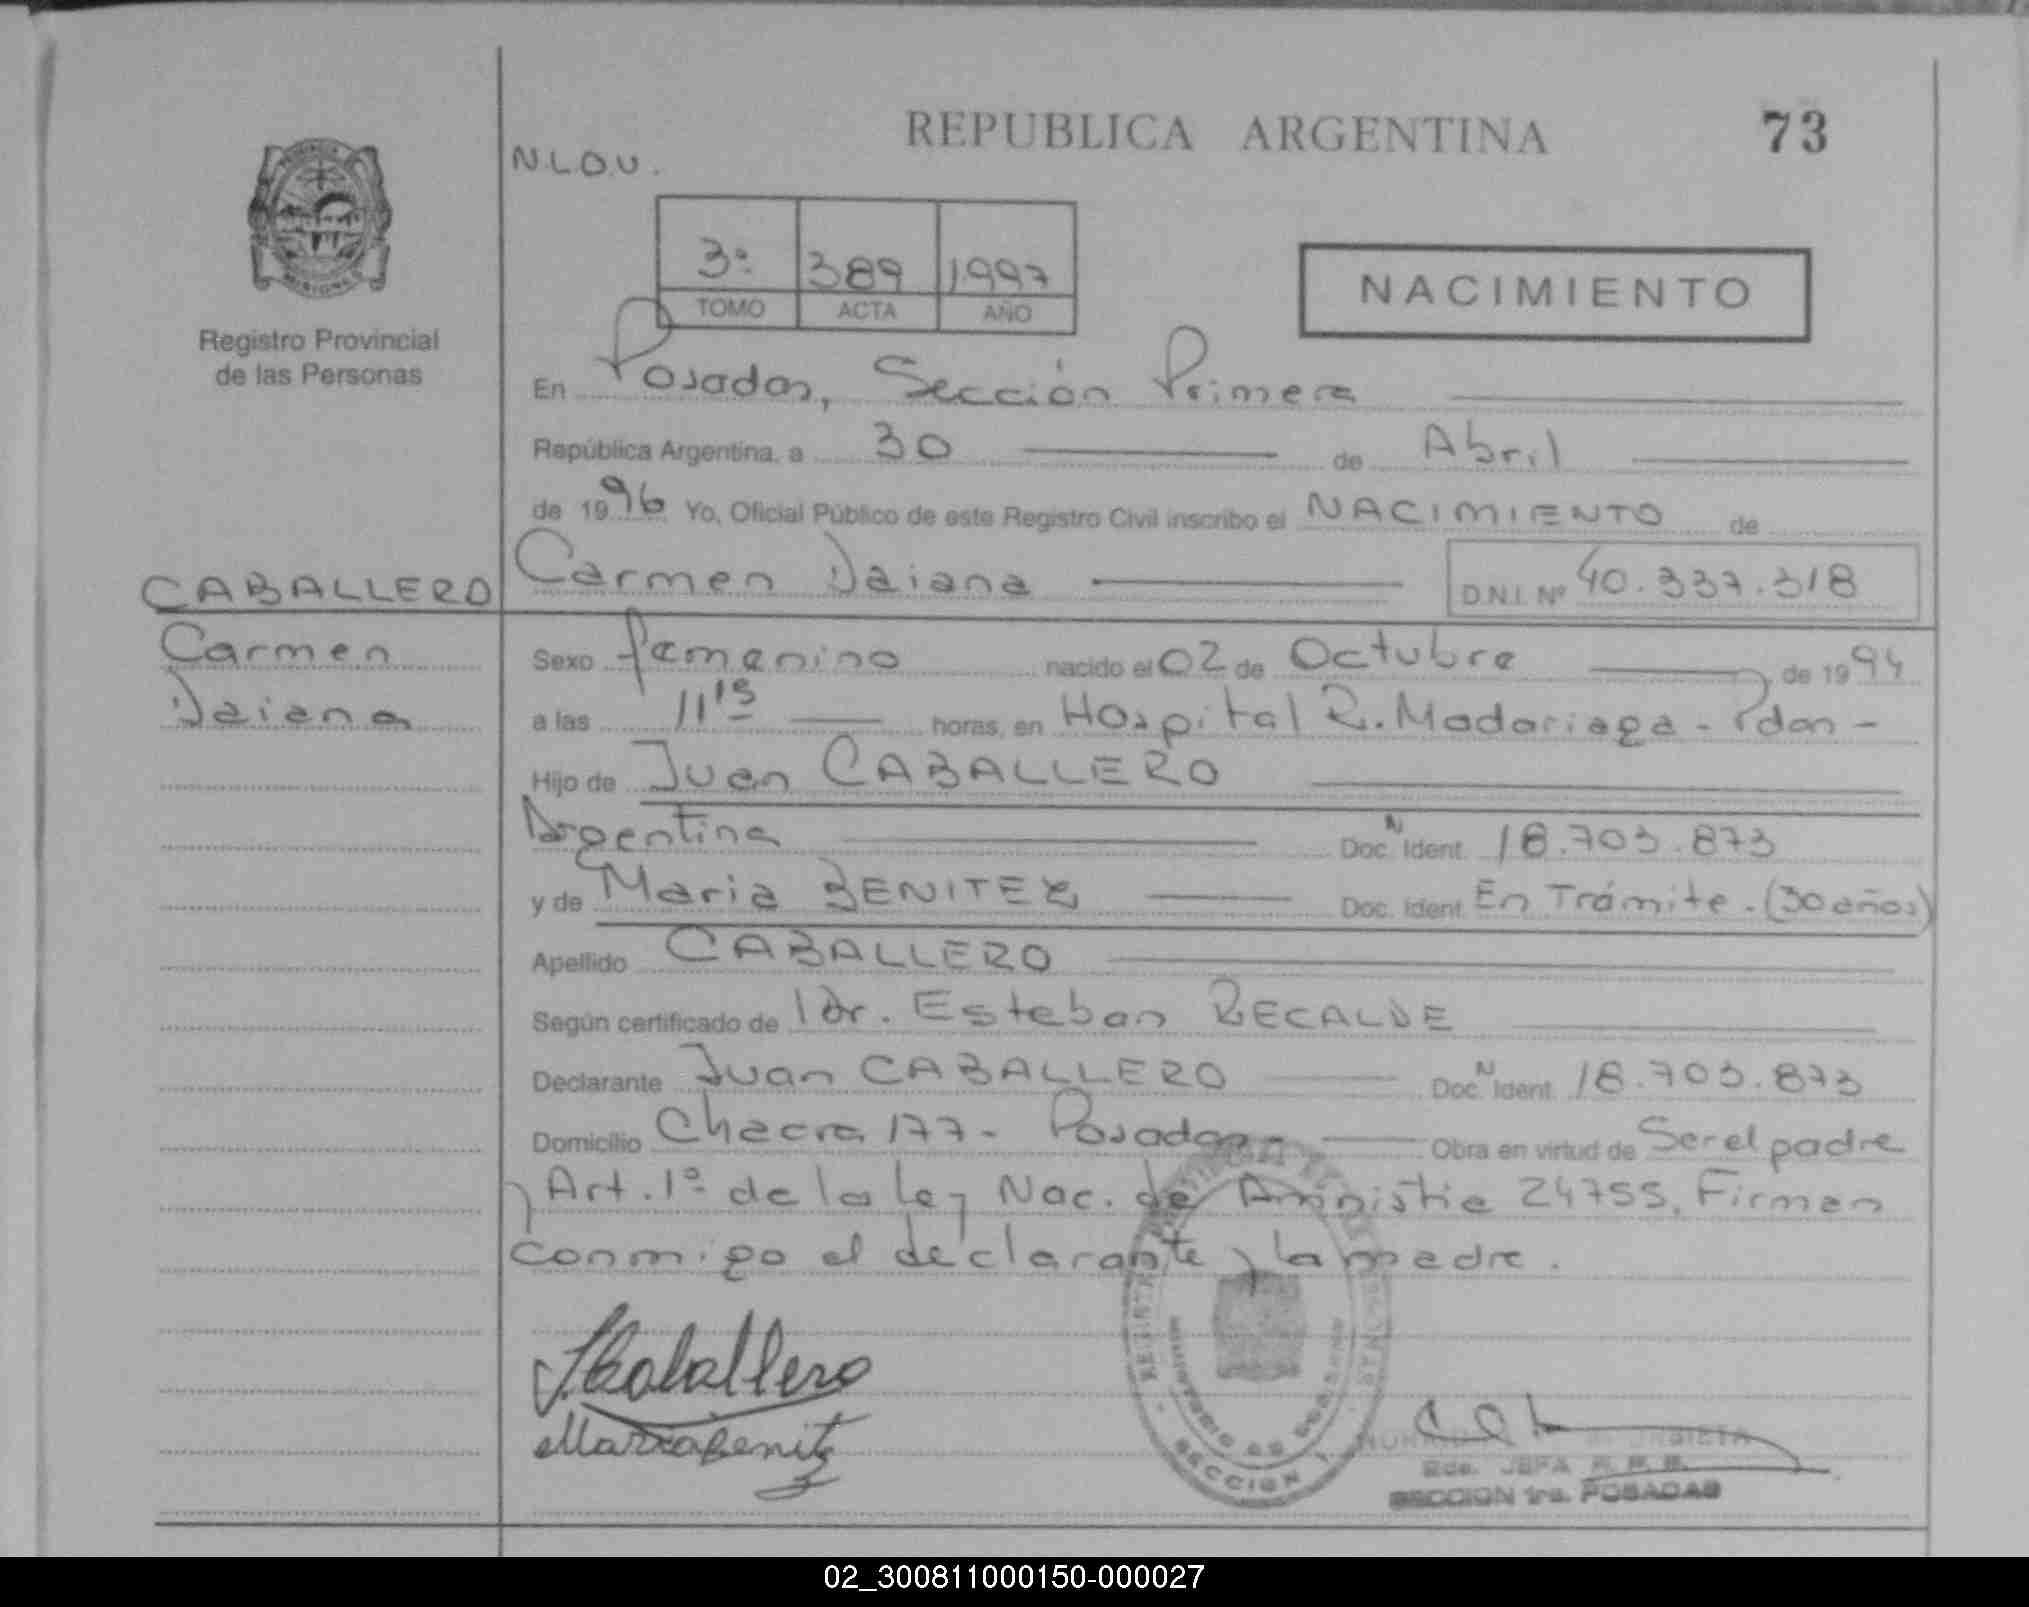 REPUBLICA ARGENTINA
73
N.L.O.U.
3º 389 1997
TOMO ACTA AÑO
NACIMIENTO
Registro Provincial
de las Personas
En Posadas, Sección Primera
República Argentina, a 30 de Abril
de 1996 Yo, Oficial Público de este Registro Civil inscribo el NACIMIENTO de
CABALLERO
Carmen Daiana D.N.I. Nº 40.337.318
Carmen
Daiana
Sexo femenino nacido el 02 de Octubre de 1994
a las 11'15 horas, en Hospital R. Madariaga - Pdas -
Hijo de Juan CABALLERO
Argentina Doc. N Ident. 18.703.873
y de Maria BENITEZ Doc. Ident. En Trámite. (30 años)
Apellido CABALLERO
Según certificado de Dr. Esteban RECALDE
Declarante Juan CABALLERO Doc. N Ident. 18.703.873
Domicilio Chacra 177 - Posadas - Obra en virtud de Ser el padre
y Art. 1º de la Ley Nac. de Amnistia 24755. Firman
conmigo el declarante y la madre.
JCaballero
Maria Benitez
SECCION 1
JEFA R. P. P.
SECCION 1ra. POSADAS
02_300811000150-000027